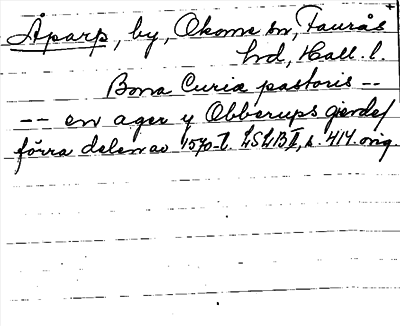 Åparp, by, Okome sn, Faurås
hd, Hall. l.
Bona Curiæ pastoris --
-- en ager y Obberups gierde/
förra delen av 1570-t. LSLB II, s. 414. orig.